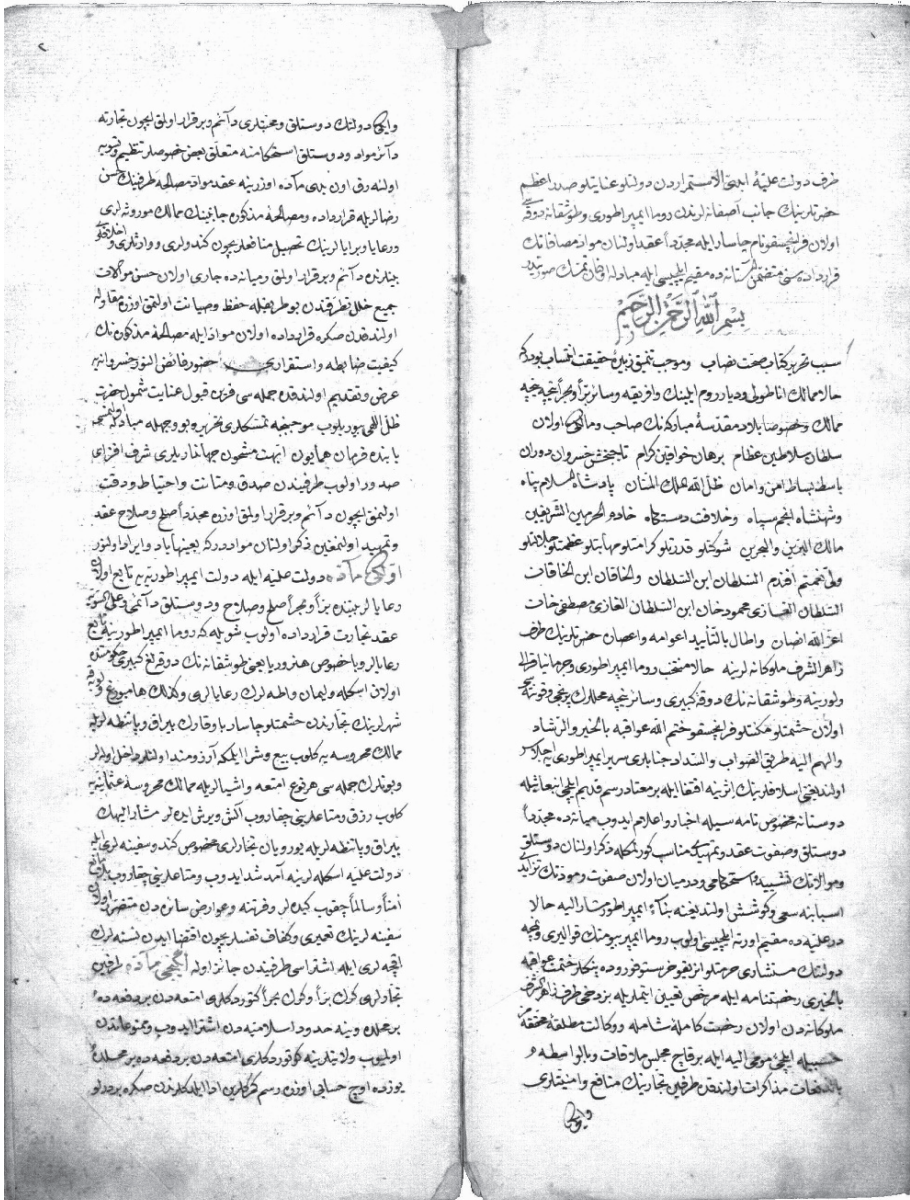 طرف دولت عليۀ ابدیّ الاستمراردن دولتلو عنايتلو صدر اعظم
حضرتلرينك جانب آصفانه لرندن روما ايمپراطوری وطوشقانه دوقه سی
اولان فرانچسقو نام چاسار ايله مجدّداً عقد اولنان مواد مصافاتك
قرارداده سنی متضمّن آستانه ده مقيم ايلچيسی ايله مبادله اولنان تمسّك صورتيدر
بسم الله الرحمن الرحيم
سبب تحرير كتاب صحت نصاب وموجب تنميق زبین حقيقت انتساب بودركه
حالا ممالك اناطولی وديار روم ايلينك وافريقه وسائر برّاً وبحراً نيجه نيجه
ممالك وخصوصا بلاد مقدّسۀ مباركه نك صاحب ومالكی اولان
سلطان سلاطين عظام برهان خواقين كرام تاجبخش خسروان دوران
باسط بساط امن وامان ظلّ الله الملك المنّان پادشاه اسلام پناه
وشهنشاه انجم سپاه وخلافت دستكاه خادم الحرمين الشريفين
مالك البرّين والبحرين شوكتلو قدرتلو كرامتلو مهابتلو عظمتلو جلالتلو
ولی نعمتم افندم السلطان ابن السلطان والخاقان ابن الخاقان
السلطان الغازی محمود خان ابن السلطان الغازی مصطفی خان
اعزّ الله انصاره واطال بالتأييد اعوامه واعصاره حضرتلرينك طرف
زاهر الشرف ملوكانه لرينه حالا منتخب روما ايمپراطوری وجرمانيا قرالی
ولورينه وطوشقانه نك دوقۀ كبيری وسائر نيجه محللرك پرنجی وقونته سی
اولان حشمتلو مكنتلو فرانچسقو ختم الله عواقبه بالخير والرشاد
والهم اليه طريق الصواب والسداد جنابلری سرير ايمپراطوری يه اجلاس
اولنديغنی اسلافلرينك اثرينه اقتفا ايله بر معتاد رسم قديم ايلچی انبعاثيله
دوستانه مخصوص نامه سيله اخبار واعلام ايدوب ميانه ده مجدّداً
دوستلق وصفوت عقد وتمهيدی مناسب كورلمكله ذكر اولنان دوستلق
وموالاتك تشييد واستحكامی ودرميان اولان صفوت ومودّتك تزايدی
اسبابنه سعی وكوشش اولنديغنه بناءً ايمپراطور مشار اليه حالا
در عليه ده مقيم اورته ايلچيسی اولوب روما ايمپريومنك قواليری ونمچه
دولتنك مستشاری حرمتلو انريقو خرستوفورو ده پنكلر ختمت عواقبه
بالخيری رخصتنامه ايله مرخّص تعيين ايتمكله بزدخی طرف زاهر الشرف
ملوكانه دن اولان رخصت كامله شامله ووكالت مطلقۀ محقّقه مز
حسبيله ايلچی مومی اليه ايله بر قاچ مجلس ملاقات وبالواسطه و
بالدفعات مذاكرات اولندقدن طرفين تجارينك منافع وامنيتلری
وايكی
وايكی دولتك دوستلق ومحبتلری دائم وبرقرار اولمق ايچون تجارته
دائر مواد ودوستلق استحكامنه متعلّق بعض خصوصلر تنظيم وتسويه
اولنه رق اون يدی مادّه اوزرينه عقد موادّ مصالحه طرفينك حسن
رضالريله قرارداده ومصالحۀ مذكوره جانبينك ممالك موروثه لری
ورعايا وبرايالرينك تحصيل منافعلريچون كندولری ووارثلری واخلافلری
بينلرنده دائم وبرقرار اولمق وميانه ده جاری اولان حسن موالات
جميع خلل تطرّقندن بو طريقله حفظ وصيانت اولنمق اوزره مقاوله
اولندقدن صكره قرارداده اولان مواد ايله مصالحۀ مذكوره نك
كيفيت ضابطه واستقراری حضور فائض النور خسروانه يه
عرض وتقديم اولندقده جمله سی قرين قبول عنايت شمول حضرت
ظلّ اللهی بيوريلوب موجبنجه تمسّكلری تحرير وبو وجهله مبادله اولنمسيچون
يا بنده فرمان همايون ابهت مشحون جهاندارلری شرف افزای
صدور اولوب طرفيندن صدق ومتانت واحتياط ودقت
اولنمق ايچون دائم وبرقرار اولمق اوزره مجدّداً صلح وصلاح عقد
وتمهيد اولنمغين ذكر اولنان مواددركه بعينها ياد وايراد اولنور
اولكی مادّه دولت عليه ايله دولت ايمپراطوريه يه تابع اولان
رعايالر بيننده برّاً وبحراً صلح وصلاح ودوستلق دائمی وعلی السويه
عقد تجارت قرارداده اولوب شويله كه روما ايمپراطورينه تابع
رعايالر وبا خصوص هنوز رعايا يعنی طوشقانه نك دوقه لغ كبيری حكومتنده
اولان اسكله وليمان واطه لرك رعايالری وكذلك هامبورغ ولوبقه
شهرلرينك تجارندن حشمتلو چاسار باوقارك بيراق وپاتنطه لريله
ممالك محروسه يه كلوب بيع وشرا ايلمكه آرزومند اولنلر داخل اوله لر
وبونلرك جمله سی هر نوع امتعه واشيالريله ممالك محروسۀ عثمانيه يه
كلوب رزق ومتاعلرينی چقاروب آلش ويرش ايده لر مشار اليهك
بيراق وپاتنطه لريله يورويان تجارلری مخصوص كندو سفينه لری ايله
دولت عليه اسكله لرينه آمد شد ايدوب ومتاعلرينی چقاروب
امناً وسالماً چقوب كيده لر وفرتنه وعوارض سائره دن متضرّر اولان
سفينه لرينك تعميری وكفاف نفسلريچون اقتضا ايدن نسنه لرك
اقچه لری ايله اشتراسی طرفيندن جائز اوله ايكنجی مادّه طرفين
تجارلری كرك برّاً وكرك بحراً كتوردكلری امتعه دن بر دفعه ده
بر محلدن وينه حدود اسلاميه دن اشترا ايدوب وممنوعاتدن
اولميوب ولايتلرينه كوتوردكلری امتعه دن بر دفعه ده بر محلده
يوزده اوچ حسابی اوزره رسم كمركلرين ادا ايلدكلرندن صكره بر درلو